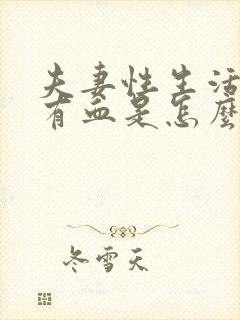 夫妻性生活
有血是怎麽
冬雪天